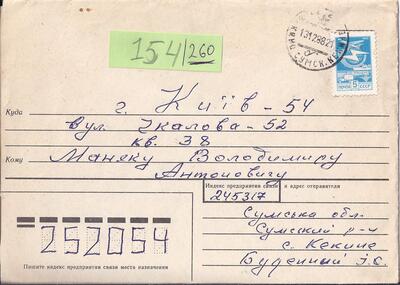 154/260
ПОЧТА СССР 5
131288 21
СУМСК.
Куда
г. Київ - 54
вул. Чкалова - 52
кв. 38
Кому
Маняку Володимиру
Антоновичу
Индекс предприятия связи и адрес отправителя
245317
Сумська обл.
Сумский р-н
с. Кекине
Буденный
252054
Пишите индекс предприятия связи места назначения